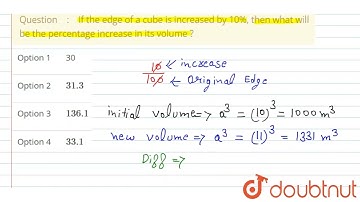 Question : If the edge of a cube is increased by 10%, then what will be the percentage increase in its volume ?
Option 1 30
Option 2 31.3
Option 3 136.1
Option 4 33.1
10 ← increase
100 ← Original Edge
initial volume => a³ = (10)³ = 1000 m³
new volume => a³ = (11)³ = 1331 m³
Diff =>
doubtnut